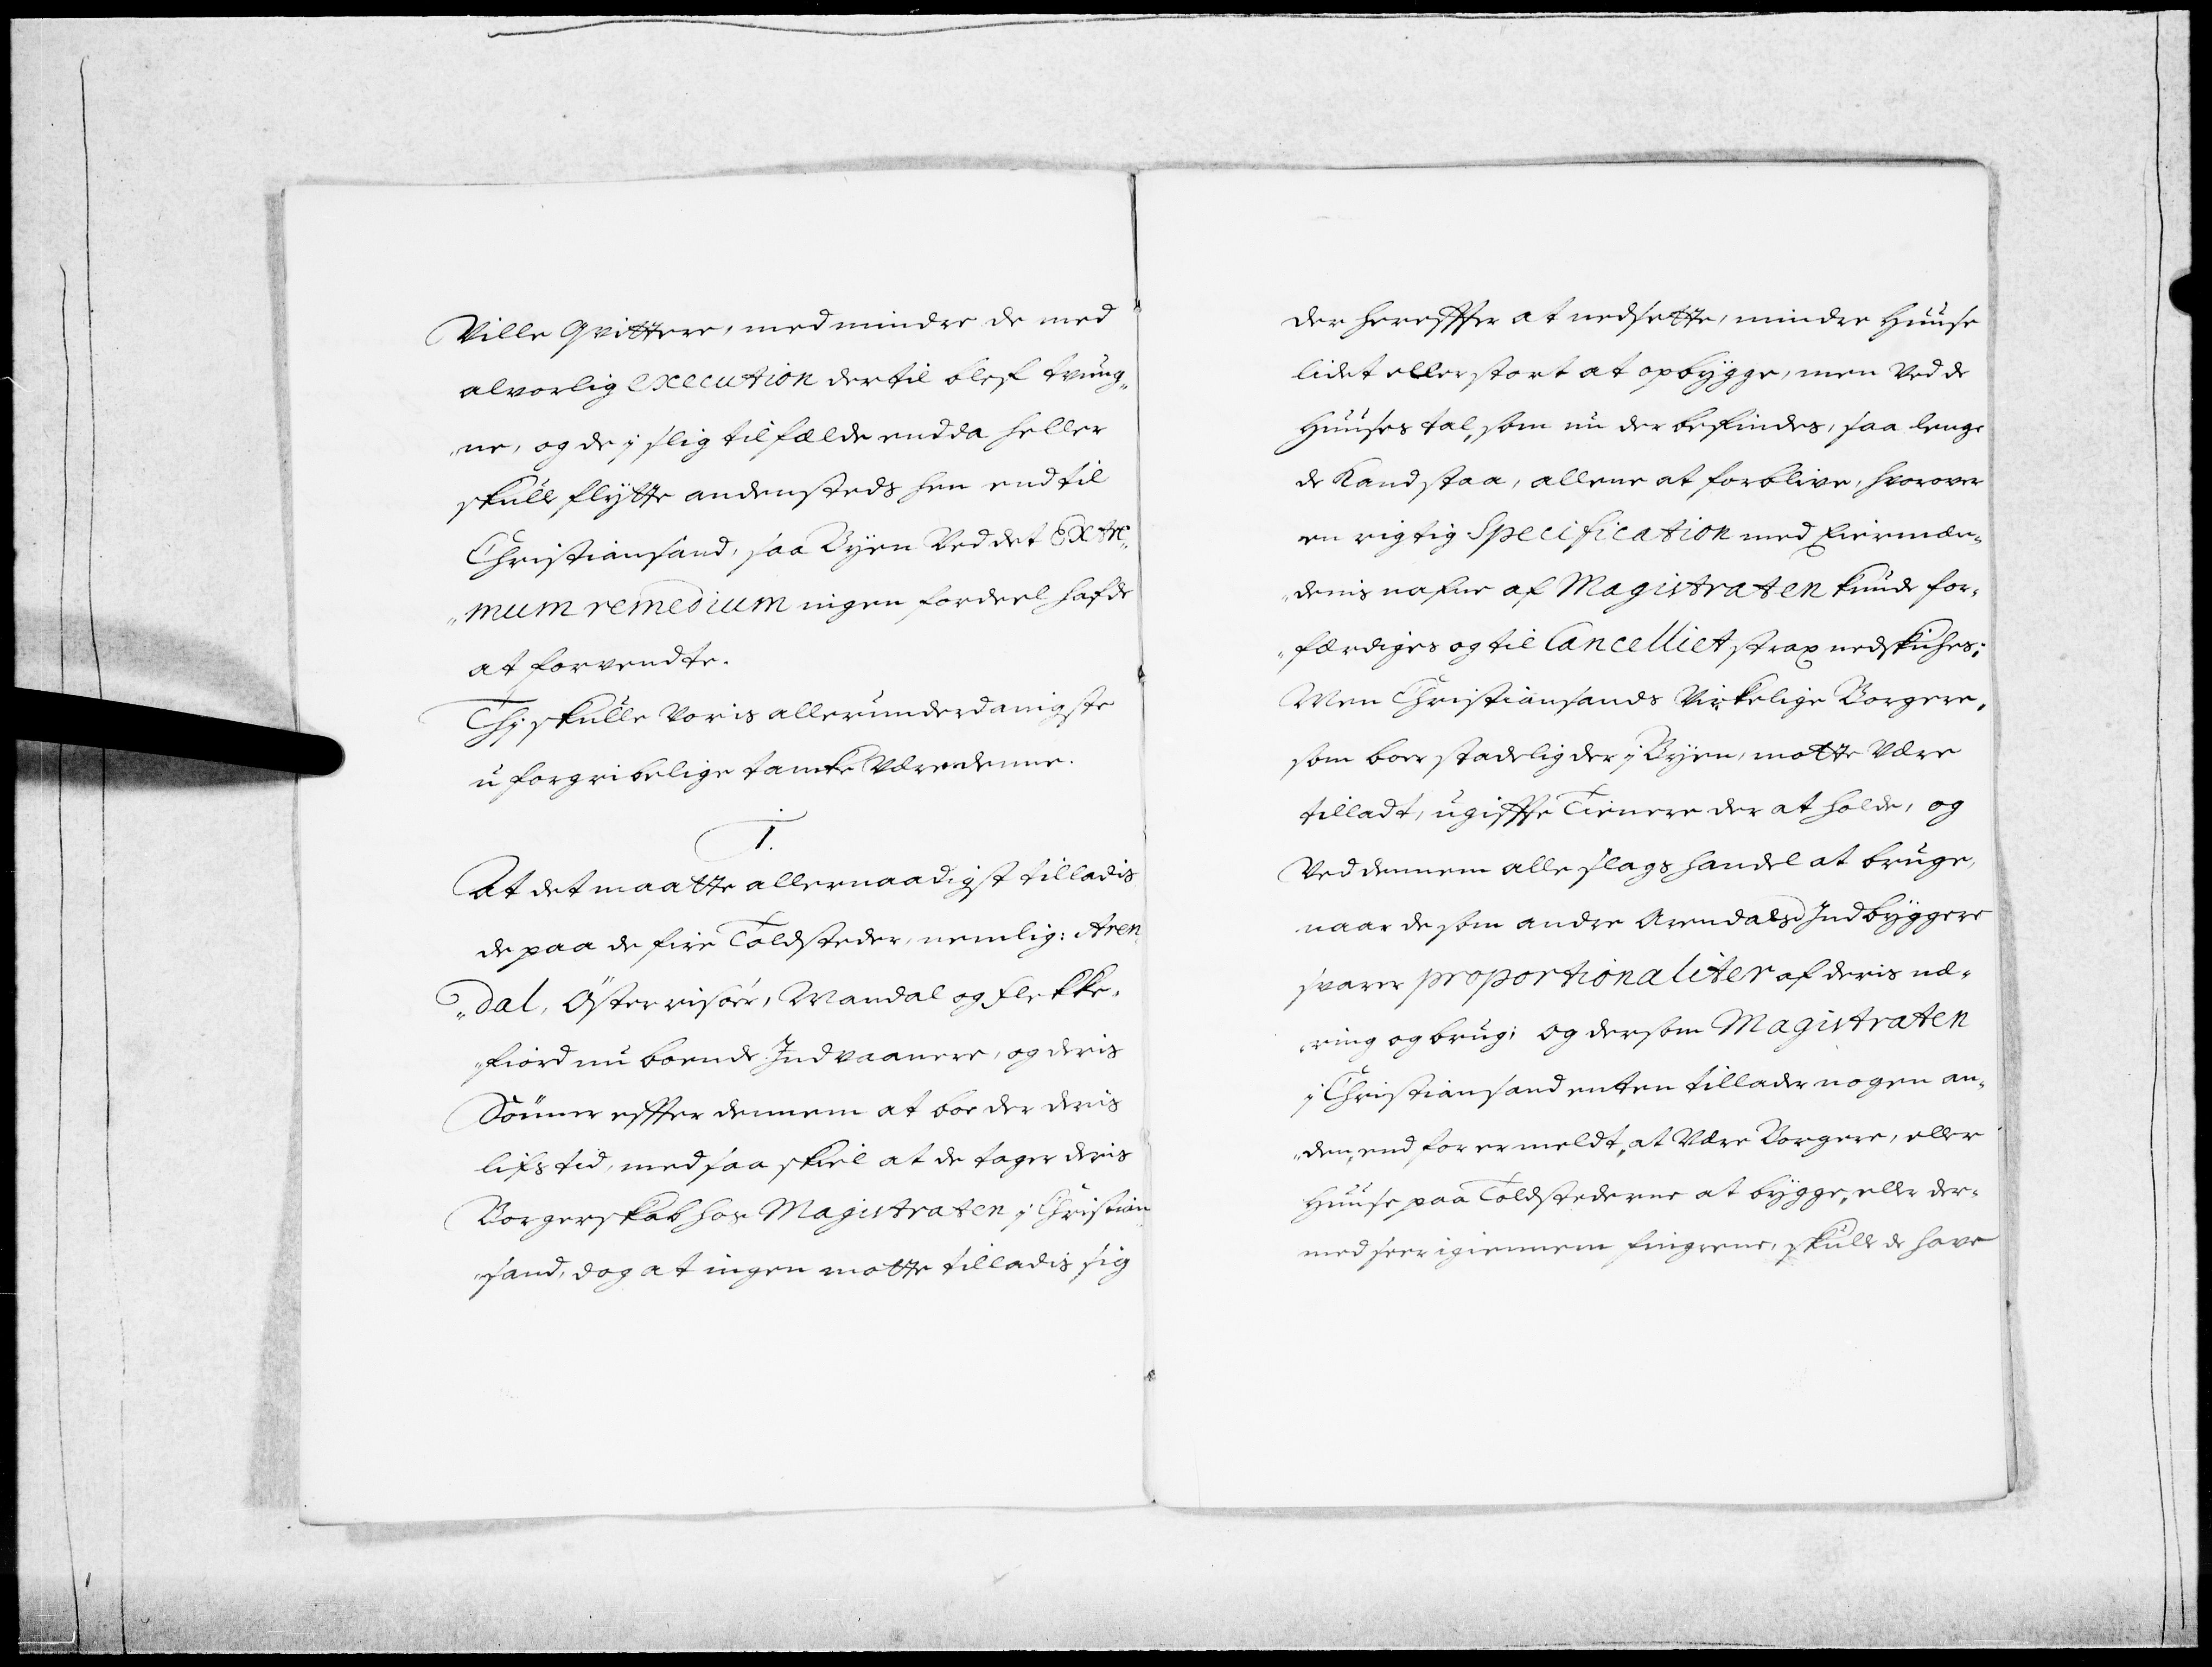 Ville Qvittere, med mindre de med
alvorlig execution dertil blef tvung„
„ne, og de j slig tilfælde endda heller
skulle flytte andensteds hen end til
Christiansand, saa Byen Ved det Extre„
„mum remedium ingen fordeel hafde
at forvendte.
Thj skulle Voris allerunderdanigste
uforgribelige tancke Være denne.
1.
At det maatte allernaadigst tilladis
de paa de fire Toldsteder, nemlig: Aren„
„dal, Österrisöer, Mandal og Flekke„
„fiord nu boende Indvaanere, og deris
Sönner effter dennem at boe der deris
lifs tid, med saa skiel at de tager deris
Borgerskab hos Magistraten j Christian„
„sand, dog at ingen motte tilladis sig
der hereffter at nedsette, mindre Huuse
lidet eller stort at opbygge, men Ved de
Huuses tal, som nu der befindes, saa lenge
de Kand staa, allene at forblive, hvorover
en rigtig Specification med Eiermæn„
„denis nafne af Magistraten kunde for„
„færdiges og til Cancelliet strax nedskikes;
Men Christiansands Virkelige Borgere,
som boer stadelig der j Byen, motte Være
tilladt, ugiffte Tienere der at holde, og
Ved dennem alle slags handel at bruge,
naar de som andre Arendals Indbyggere
svarer proportionaliter af deris næ„
„ring og brug; og dersom Magistraten
j Christiansand enten tillader nogen an„
„den, end for ermeldt, at Være Borgere, eller
Huuse paa Toldstederne at bygge, eller der„
med seer igiennem fingrene, skulle de have